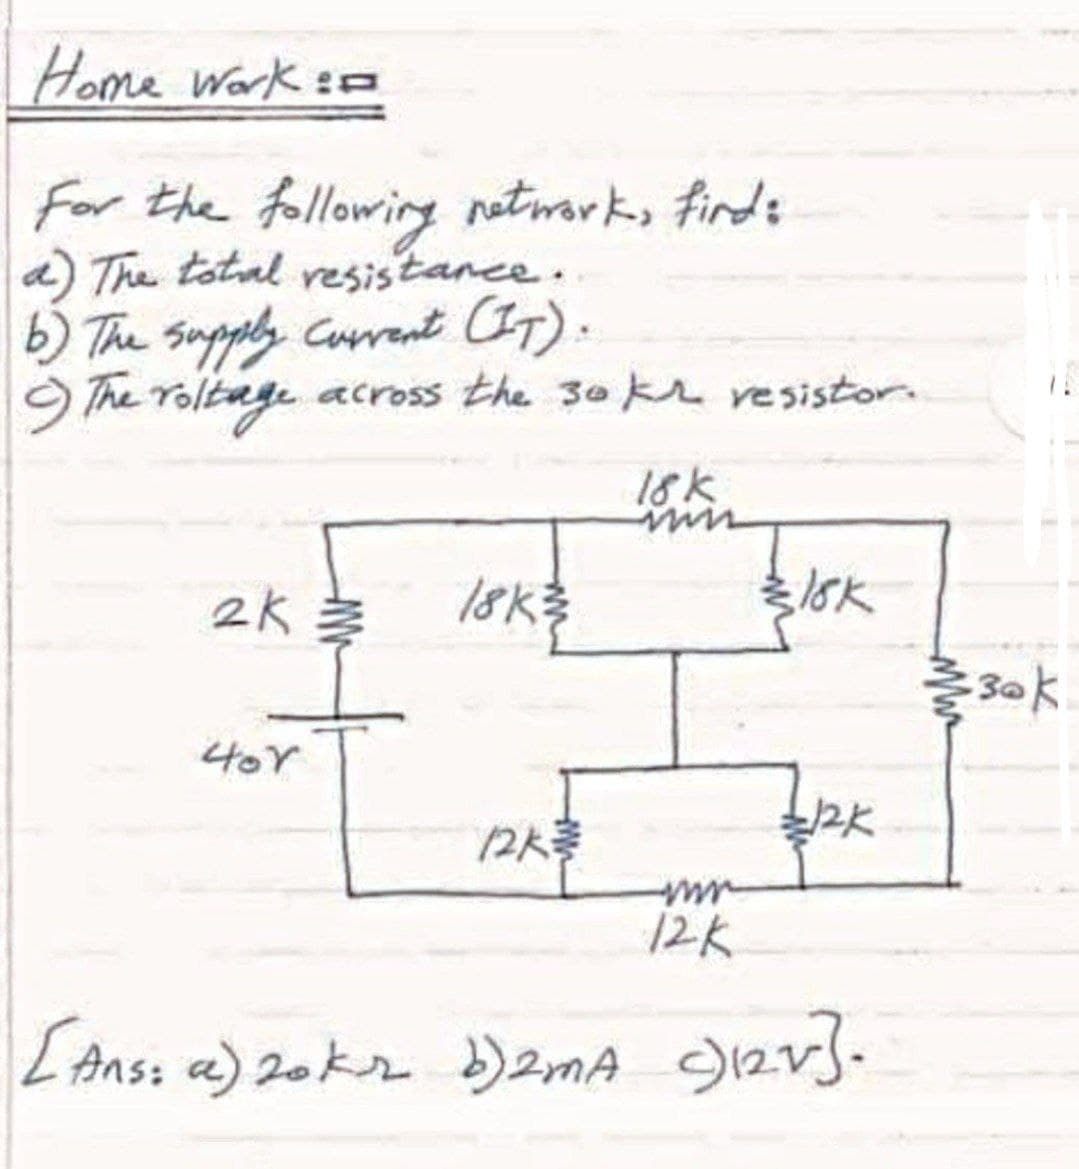 Home Work :-
For the following network, find:
a) The total resistance.
b) The supply current (IT).
c) The voltage across the 30 kΩ resistor.
18K
2K
18K
18K
30K
40V
12K
12K
12K
[Ans: a) 20kΩ b) 2mA c) 12V].